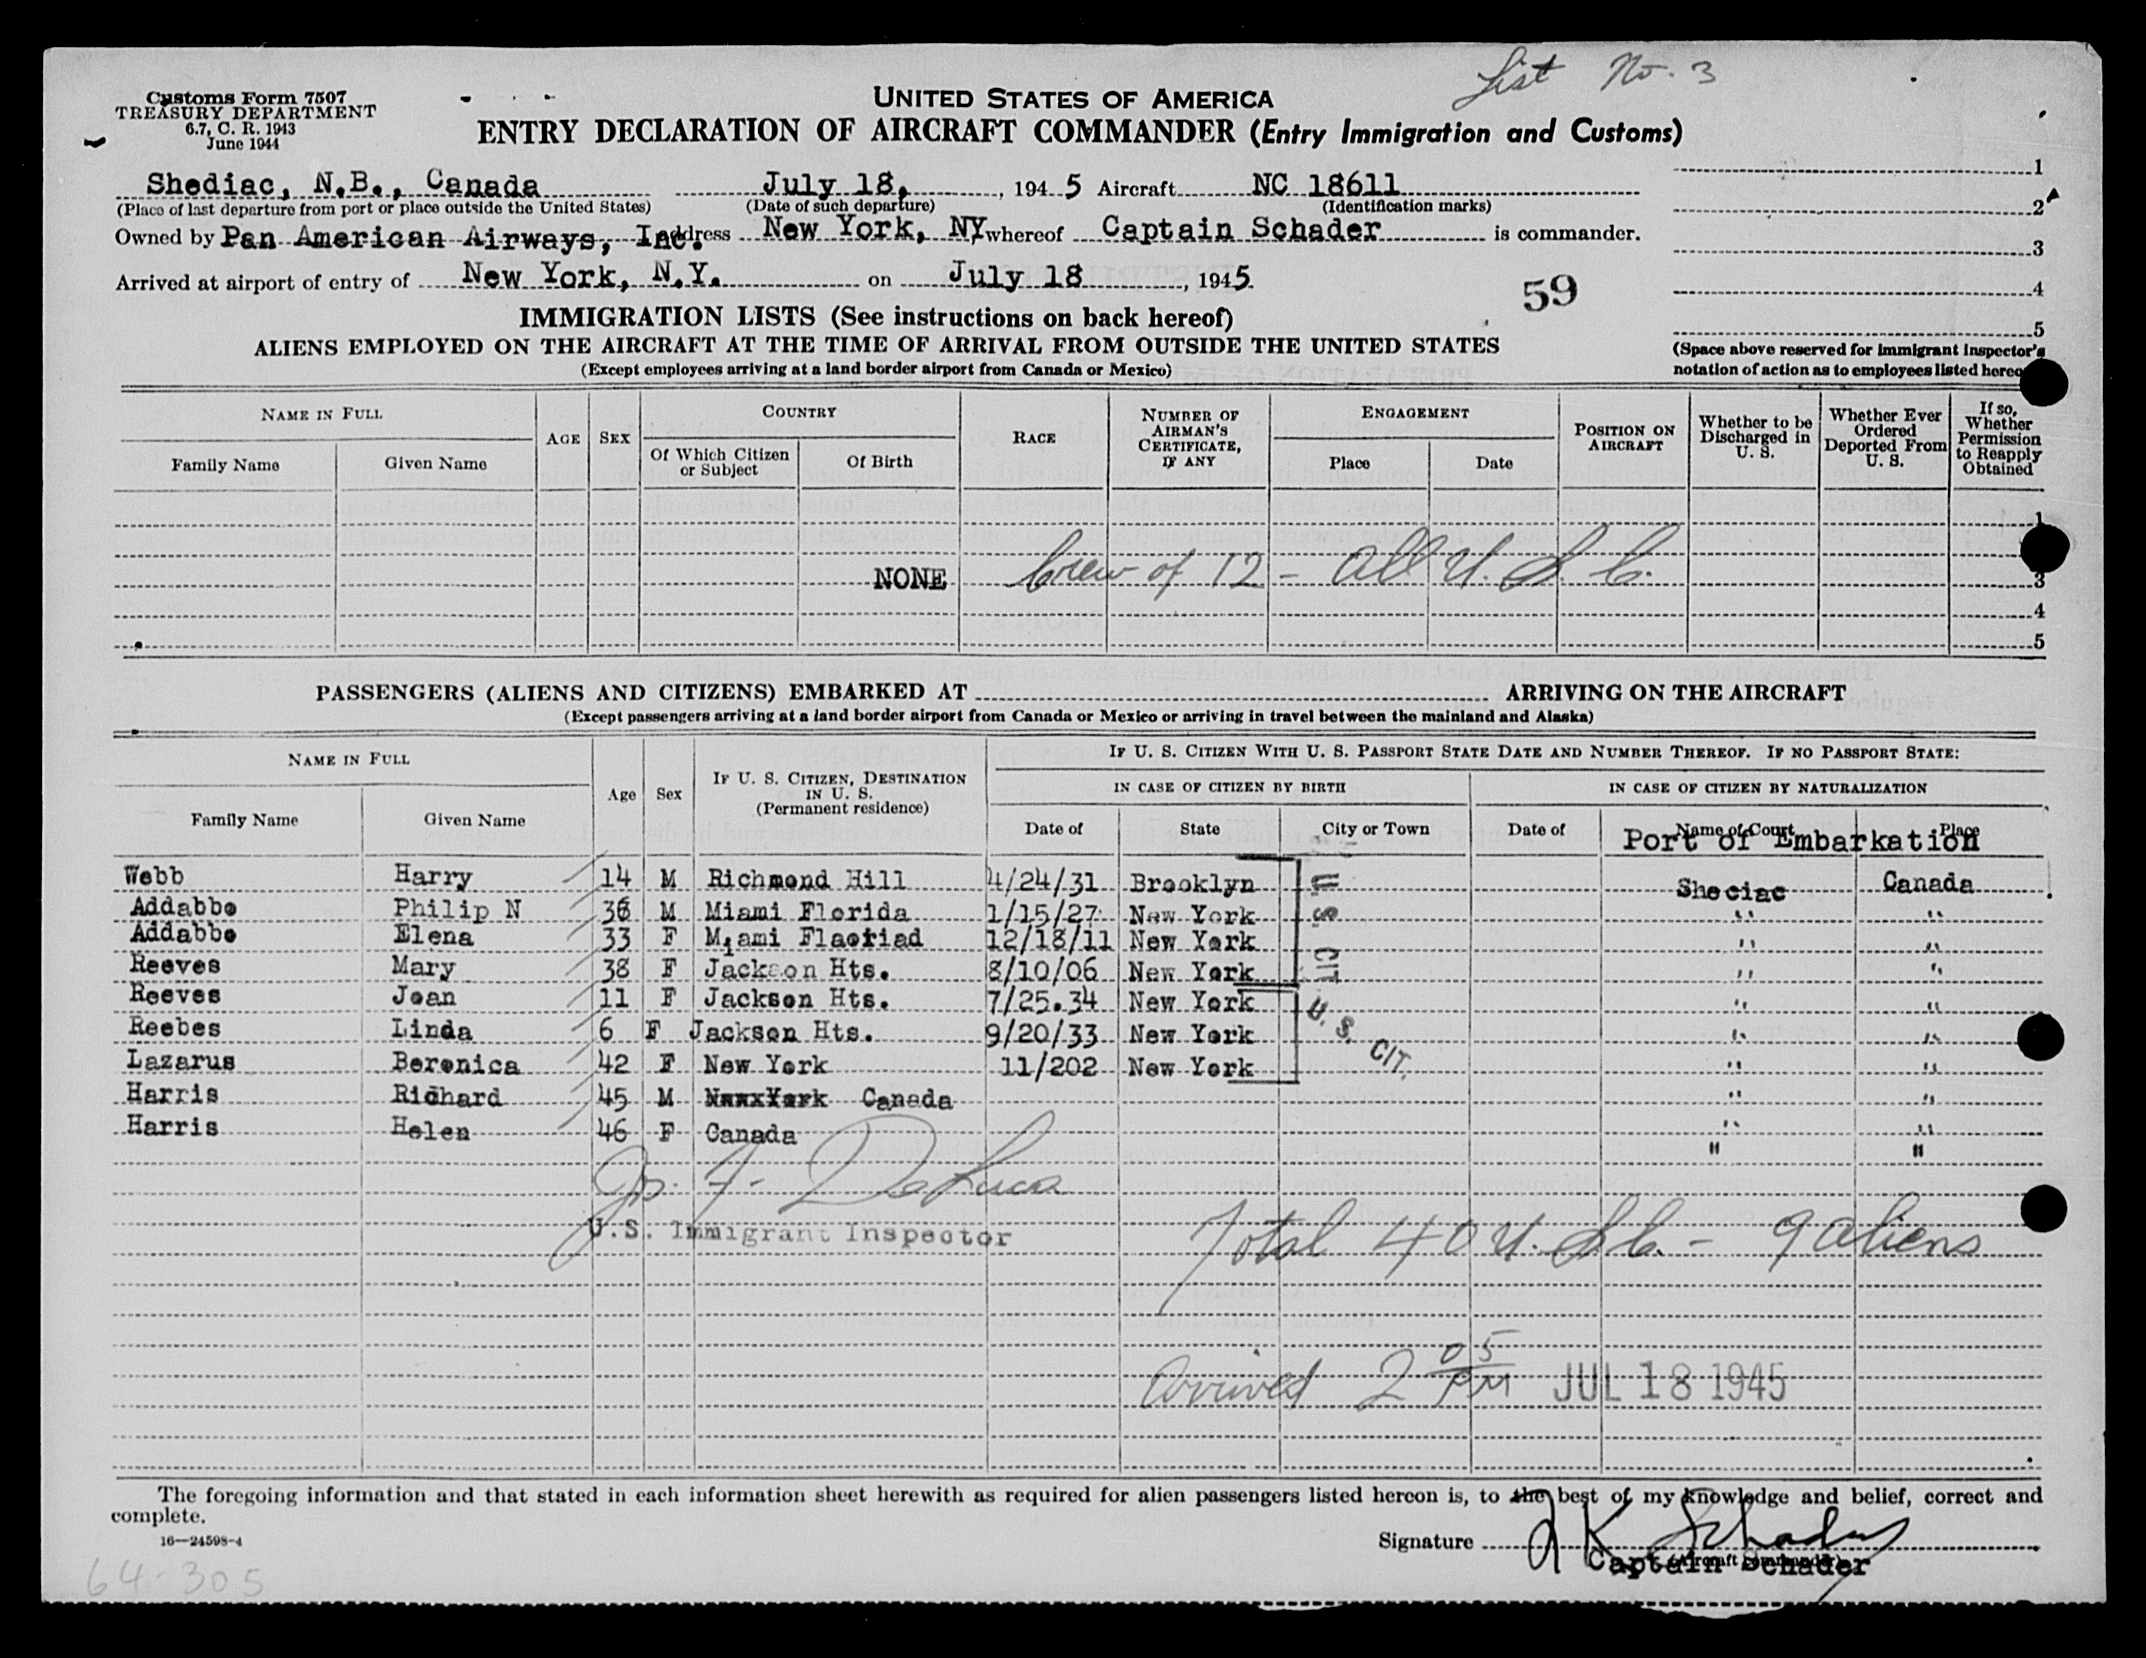 List No. 3
Customs Form 7507
TREASURY DEPARTMENT
6.7, C. R. 1943
June 1944
UNITED STATES OF AMERICA
ENTRY DECLARATION OF AIRCRAFT COMMANDER (Entry Immigration and Customs)
Shediac, N.B., Canada July 18, , 194 5 Aircraft NC 18611
(Place of last departure from port or place outside the United States) (Date of such departure) (Identification marks)
Owned by Pan American Airways, Inc. address New York, NY whereof Captain Schader is commander.
Arrived at airport of entry of New York, N.Y. on July 18 , 1945.
59
1
2
3
4
5
(Space above reserved for immigrant inspector's
notation of action as to employees listed hereon
IMMIGRATION LISTS (See instructions on back hereof)
ALIENS EMPLOYED ON THE AIRCRAFT AT THE TIME OF ARRIVAL FROM OUTSIDE THE UNITED STATES
(Except employees arriving at a land border airport from Canada or Mexico)
NAME IN FULL AGE SEX COUNTRY RACE NUMBER OF AIRMAN'S CERTIFICATE, IF ANY ENGAGEMENT POSITION ON AIRCRAFT Whether to be Discharged in U. S. Whether Ever Ordered Deported From U. S. If so, Whether Permission to Reapply Obtained
Family Name Given Name Of Which Citizen or Subject Of Birth Place Date
1
NONE Crew of 12 - all U. S. C.
3
4
5
PASSENGERS (ALIENS AND CITIZENS) EMBARKED AT ARRIVING ON THE AIRCRAFT
(Except passengers arriving at a land border airport from Canada or Mexico or arriving in travel between the mainland and Alaska)
NAME IN FULL Age Sex IF U. S. CITIZEN, DESTINATION IN U. S. (Permanent residence) IF U. S. CITIZEN WITH U. S. PASSPORT STATE DATE AND NUMBER THEREOF. IF NO PASSPORT STATE:
IN CASE OF CITIZEN BY BIRTH IN CASE OF CITIZEN BY NATURALIZATION
Family Name Given Name Date of State City or Town Date of Name of Court Place
Port of Embarkation
Webb Harry 14 M Richmond Hill 4/24/31 Brooklyn Sheciac Canada
Addabbo Philip N 36 M Miami Florida 1/15/27 New York " "
Addabbo Elena 33 F Miami Flaoriad 12/18/11 New York " "
Reeves Mary 38 F Jackson Hts. 8/10/06 New York " "
Reeves Joan 11 F Jackson Hts. 7/25.34 New York " "
Reebes Linda 6 F Jackson Hts. 9/20/33 New York " "
Lazarus Beronica 42 F New York 11/202 New York " "
Harris Richard 45 M Canada " "
Harris Helen 46 F Canada " "
" "
U. S. CIT.
U. S. CIT.
Jos. F. DeLuca
U.S. Immigrant Inspector
Total 40 U. S. C. - 9 aliens
Arrived 2 05 PM JUL 18 1945
The foregoing information and that stated in each information sheet herewith as required for alien passengers listed hereon is, to the best of my knowledge and belief, correct and
complete.
16—24598-4
Signature K Schader
(Aircraft Commander)
Captain Schader
64-305